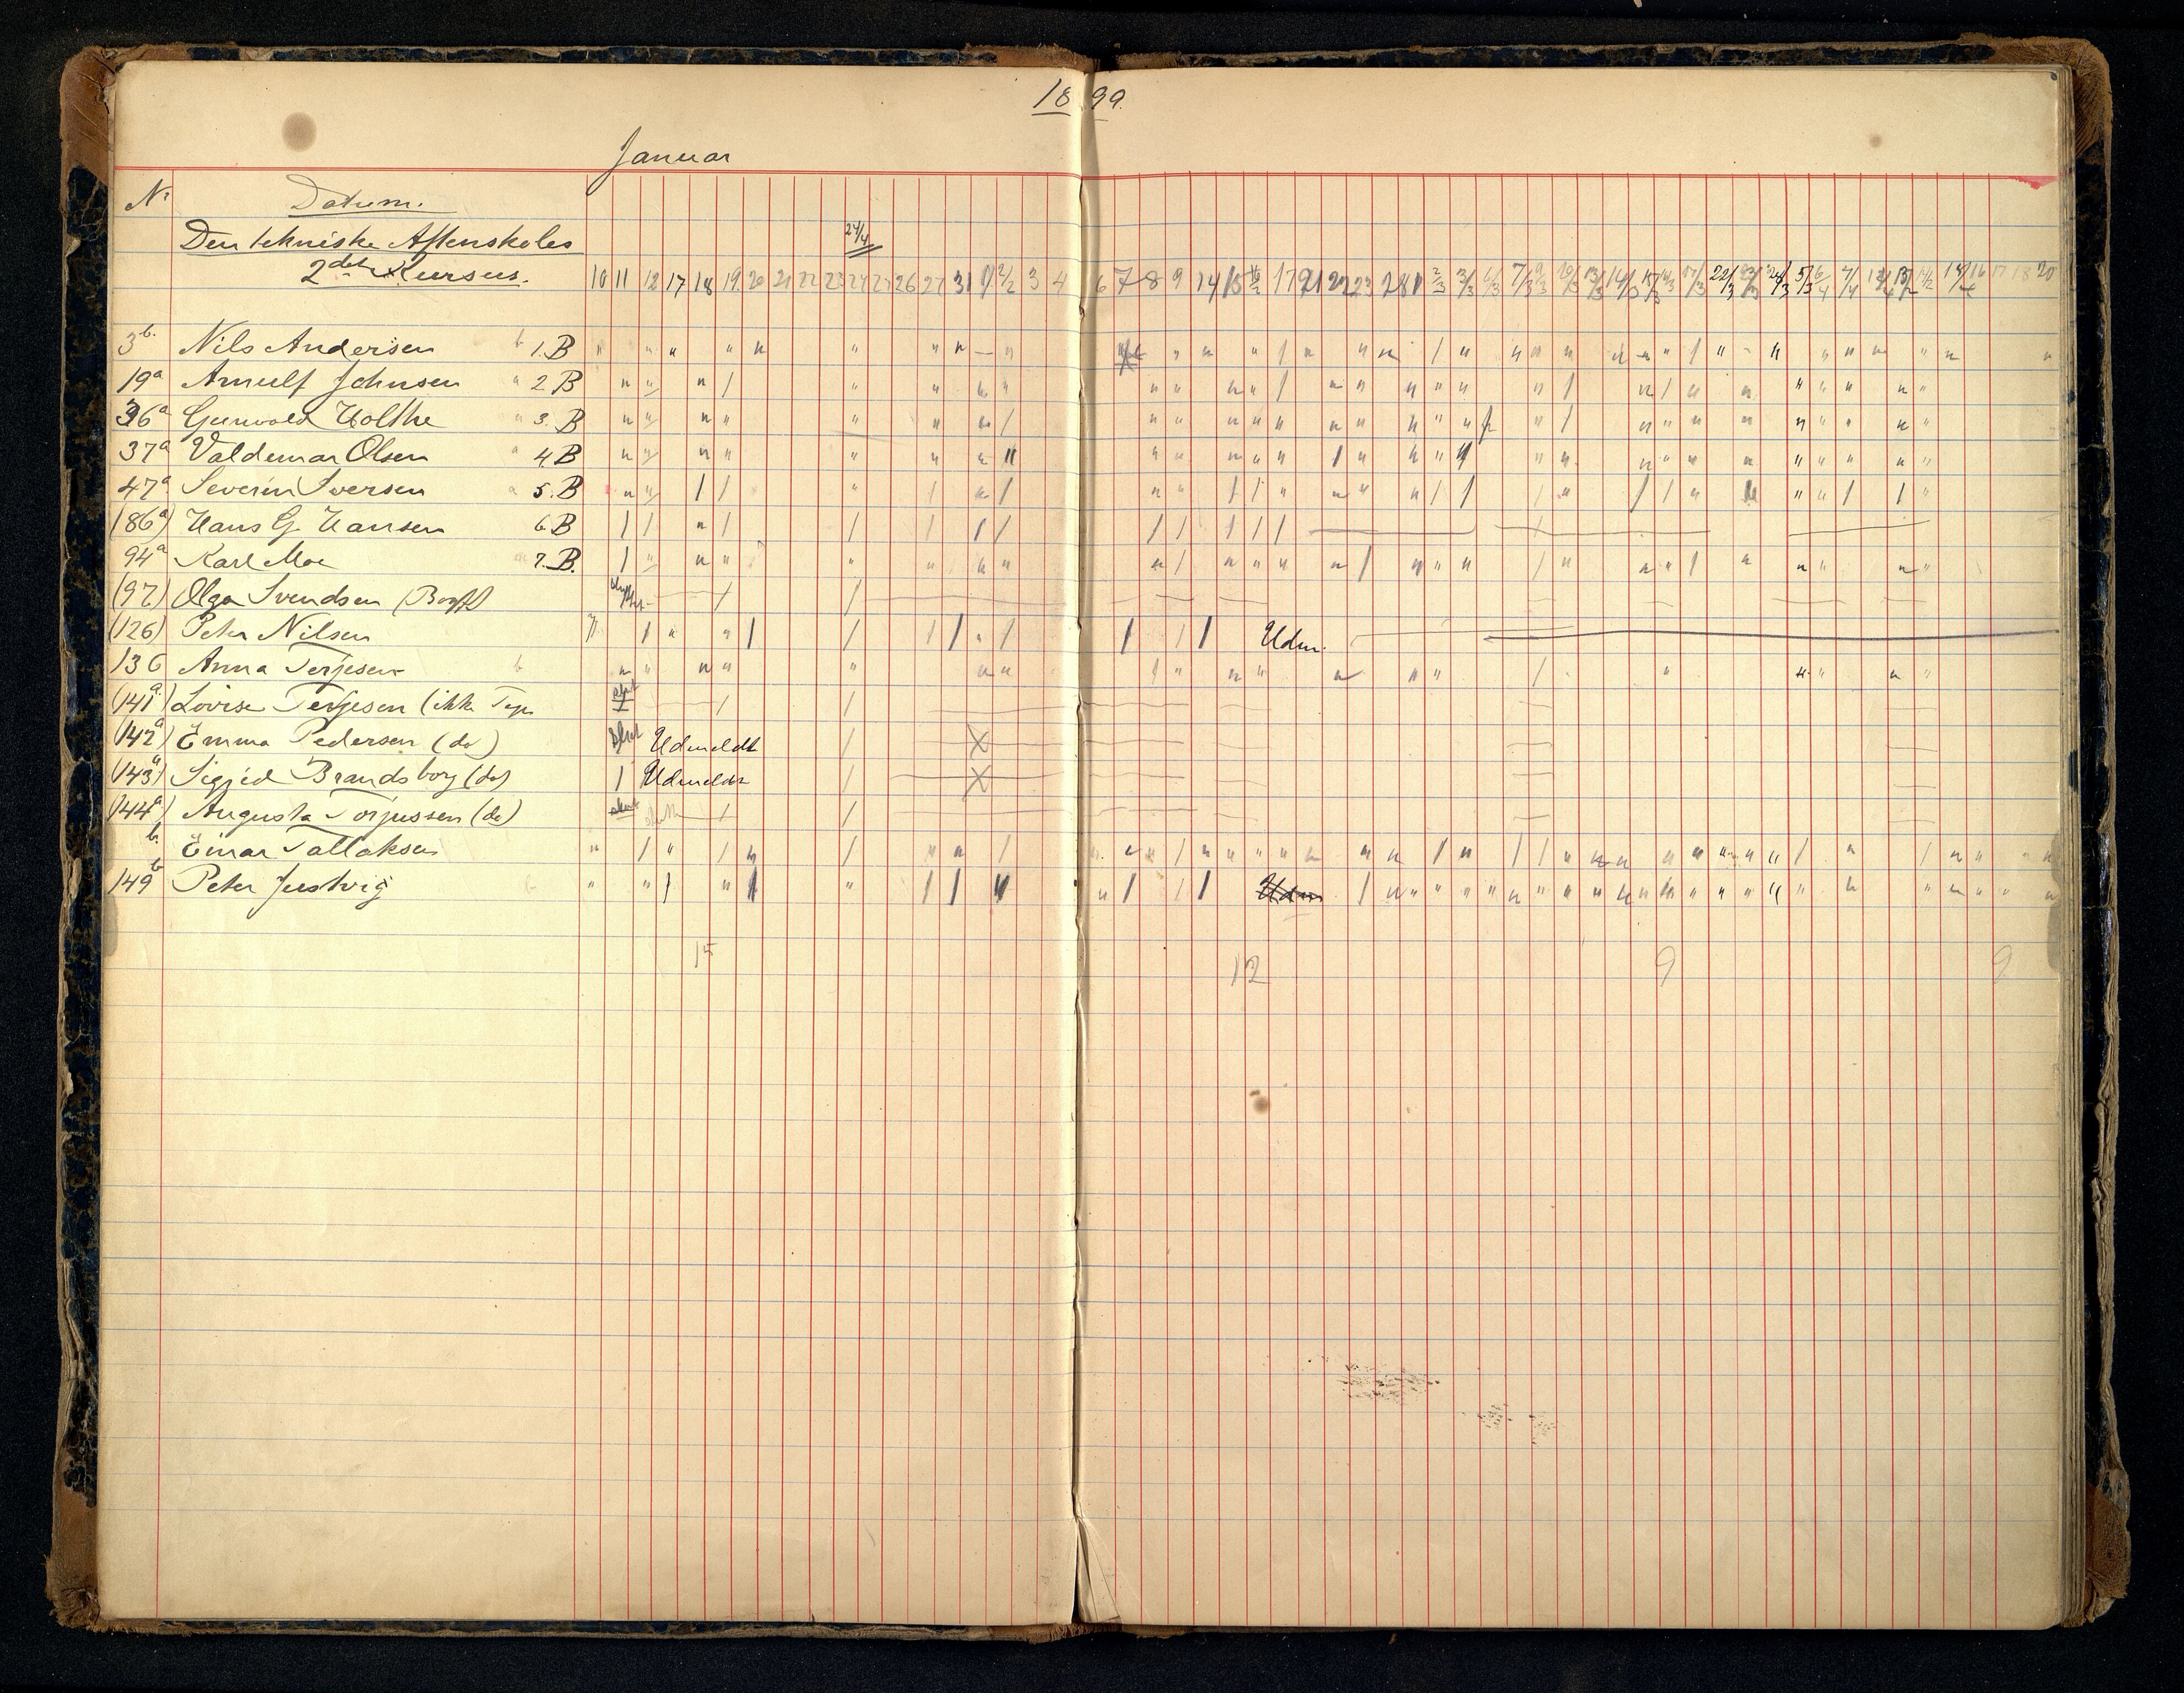 1899.
Januar
Nr Datum.
Den tekniske Aftenskoles 24/4
2det Kursus. 10 11 12 17 18 19 20 21 22 23 24 25 26 27 31 1/2 2/2 3 4 6 7 8 9 14 15 16/2 17 21 22 23 28 1 2/3 3/3 6/3 7/3 9/3 10/3 13/3 14/3 15/3 16/3 17/3 22/3 23/3 24/3 5/3 6/4 7/4 12/4 13/4 14/2 16 17 18 20
3b. Nils Andersen b 1.B
19a Arnulf Johnsen a 2 B
36a Gunvald Holthe a 3. B
37a Valdemar Olsen a 4 B
47a Severin Iversen a 5. B
(86a) Hans G. Hansen 6 B
94a Karl Moe a 7. B.
(97) Olga Svendsen
(126) Peter Nilsen Udm.
136 Anna Terjesen b
(141a) Lovise Terjesen (ikke
(142a) Emma Pedersen (do) Udmeldt
(143a) Sigrid Brandsborg (do) Udmeldt
(144a) Augusta Torjussen (do)
b. Einar Tallaksen
149b Peter Justvig b Udm
15 12 9 9